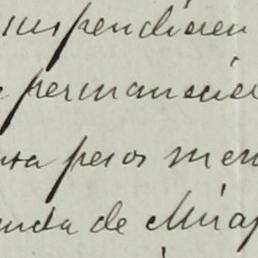 suspendieren
permanecie
nta pesos men
enda de Miraf